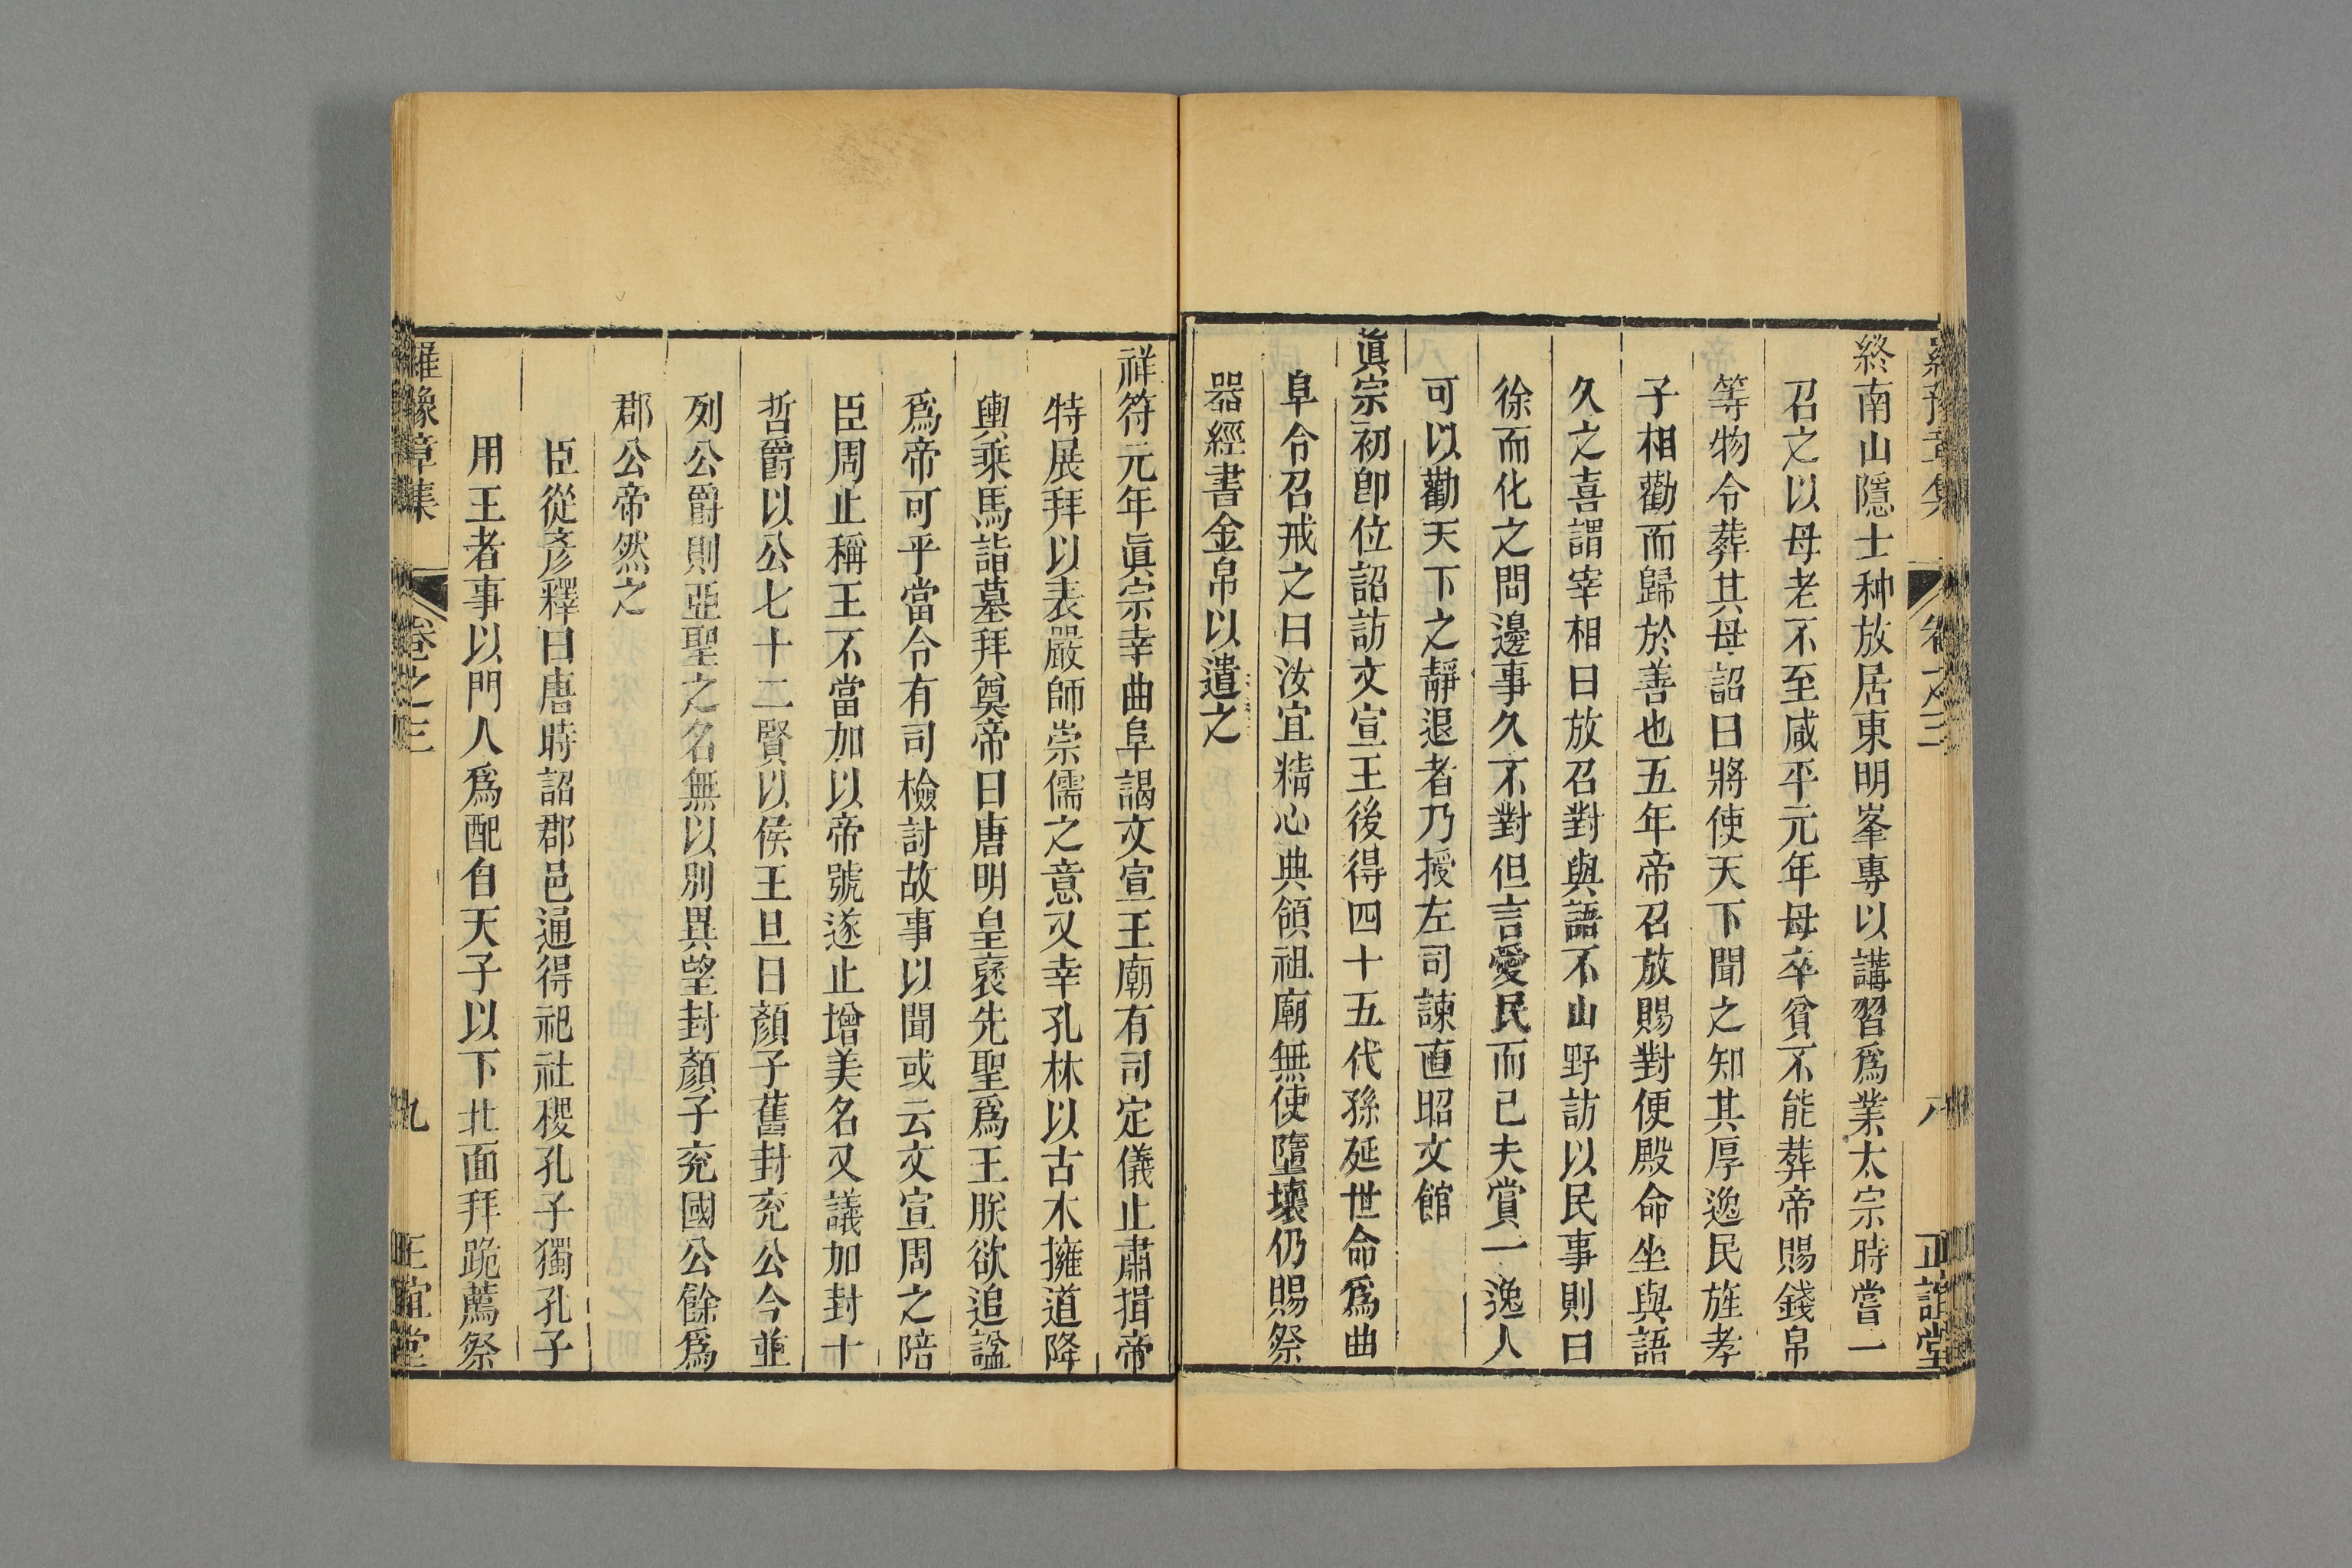 羅豫章集 卷之三 八 正誼堂
終南山隱士种放居東明峯專以講習爲業太宗時嘗一
召之以母老不至咸平元年母卒貧不能葬帝賜錢帛
等物令葬其母詔曰將使天下聞之知其厚逸民旌孝
子相勸而歸於善也五年帝召放賜對便殿命坐與語
久之喜謂宰相曰放召對與語不山野訪以民事則曰
徐而化之問邊事久不對但言愛民而已夫賞一逸人
可以勸天下之靜退者乃授左司諫直昭文館
眞宗初卽位詔訪文宣王後得四十五代孫延世命爲曲
阜令召戒之曰汝宜精心典領祖廟無使墮壞仍賜祭
器經書金帛以遺之
祥符元年眞宗幸曲阜謁文宣王廟有司定儀止肅揖帝
特展拜以表嚴師崇儒之意又幸孔林以古木擁道降
輿乘馬詣墓拜奠帝曰唐明皇褒先聖爲王朕欲追諡
爲帝可乎當令有司檢討故事以聞或云文宣周之陪
臣周止稱王不當加以帝號遂止增美名又議加封十
哲爵以公七十二賢以侯王旦曰顏子舊封兖公今並
列公爵則亞聖之名無以別異望封顏子兖國公餘爲
郡公帝然之
臣從彥釋曰唐時詔郡邑通得祀社稷孔子獨孔子
用王者事以門人爲配自天子以下北面拜跪薦祭
羅豫章集 卷之三 九 正誼堂